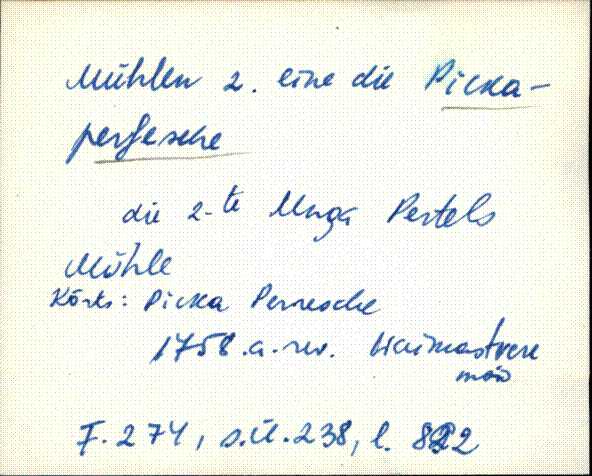 Mühlen 2. eine die Picka-
persesche
die 2-te Unga Pertels
Mühle
Kõrts: Picka Perresche
1758.a. rev. Waimastvere
mõis
F. 274, s.ü. 238, l. 822